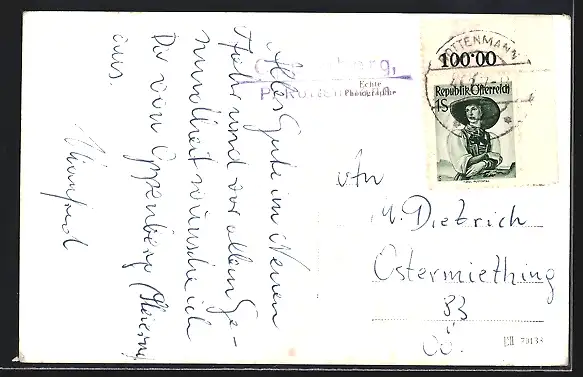 Alles Gute im Neuen
Jahr und vor allem Ge-
sundheit wünsche ich
Dir von Oppenberg (Steierm.
aus.
Manfred
Echte
Photographie
ROTTENMANN
100·00
Republik Österreich
1S
An
M. Dietrich
Ostermiething
83
OÖ.